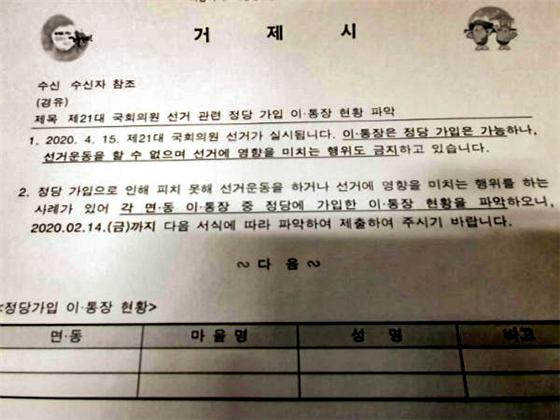 거 제 시
수신 수신자 참조
(경유)
제목 제21대 국회의원 선거 관련 정당 가입 이·통장 현황 파악
1. 2020. 4. 15. 제21대 국회의원 선거가 실시됩니다. 이·통장은 정당 가입은 가능하나,
선거운동을 할 수 없으며 선거에 영향을 미치는 행위도 금지하고 있습니다.
2. 정당 가입으로 인해 피치 못해 선거운동을 하거나 선거에 영향을 미치는 행위를 하는
사례가 있어 각 면·동 이·통장 중 정당에 가입한 이·통장 현황을 파악하오니,
2020.02.14.(금)까지 다음 서식에 따라 파악하여 제출하여 주시기 바랍니다.
~ 다 음 ~
<정당가입 이·통장 현황>
면·동 마을명 성 명 비고